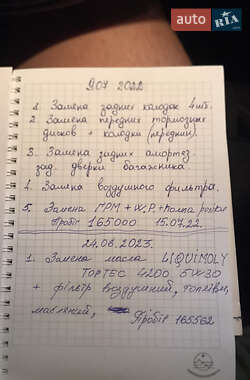 AUTO.RIA.com
9.07 2022
1. Замена задних колодок 4шт.
2. Замена передних тормозных
дисков + колодки (передних).
3. Замена задних амортез
зад. дверки багажника.
4. Замена воздушного фильтра.
5. Замена ГРМ + W.P. + помпа
Пробіг 165000 15.07.22.
24.06.2023.
1. Замена масла LIQUIMOLY
TOPTEC 4200 5W30
+ фільтр воздушний, топлівн,
масляний,
Пробіг 165562